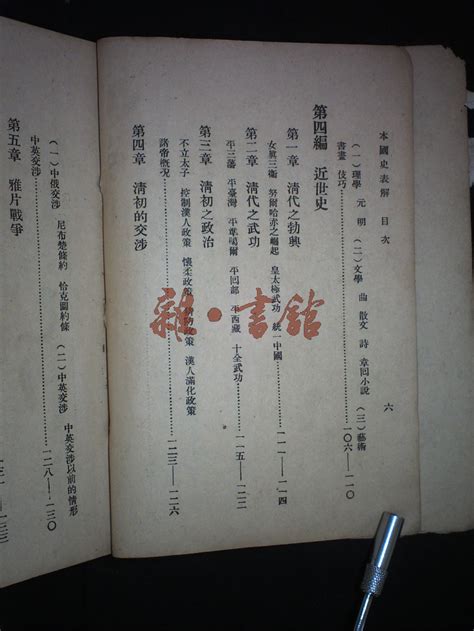 本國史表解　目次
六
(一)理學　元　明　(二)文學　曲　散文　詩　章回小說　(三)藝術
書畫　技巧……一〇六—一一〇
第四編　近世史
第一章　清代之勃興
女眞三衛　努爾哈赤之崛起　皇太極武功　統一中國……一一一—一一四
第二章　清代之武功
平三藩　平臺灣　平準噶爾　平回部　平西藏　十全武功……一一五—一二二
第三章　清初之政治
不立太子　控制漢人政策　懷柔政策　政策　漢人滿化政策
諸帝概況……一二三—一二六
第四章　清初的交涉
(一)中俄交涉　尼布楚條約　恰克圖約條　(二)中英交涉　中英交涉以前的情形
中英交涉……一二八—一三〇
第五章　雅片戰爭
雜·書館